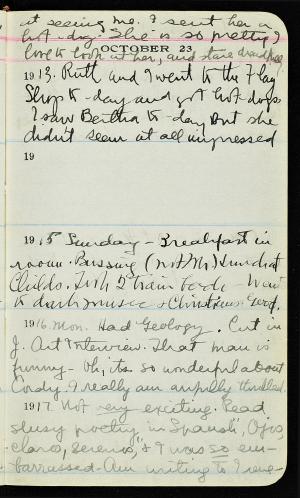 at seeing me. I sent her a
hot-dog. She is so pretty I
love to look at her, and
OCTOBER 23
1913. Ruth and I went to the Flag
Shop to-day and got hot-dogs
I saw Bertha to-day but she
didn't seem at all impressed
19
1915 Sunday - Breakfast in
room. Sunday at
Childs. Took 2 train back - Went
to dark music & Christian
1916. Mon. Had Geology. Cut in
J. Art Interview. That man is
funny - Oh, its so wonderful about
Cody. I really am awfully thrilled.
1917. Not very exciting. Read
slusy poetry in Spanish, "Ojos,
claros, serenos," & I was so em-
barrassed. Am writing to